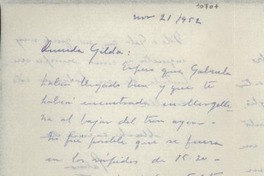 nov 21/1952
Querida Gilda:
Espero que Gabriela
habrá llegado bien y que te
habrá encontrado en
al bajar del tren ayer.
No fué posible que se fuera
en los rápidos de 15 20 -